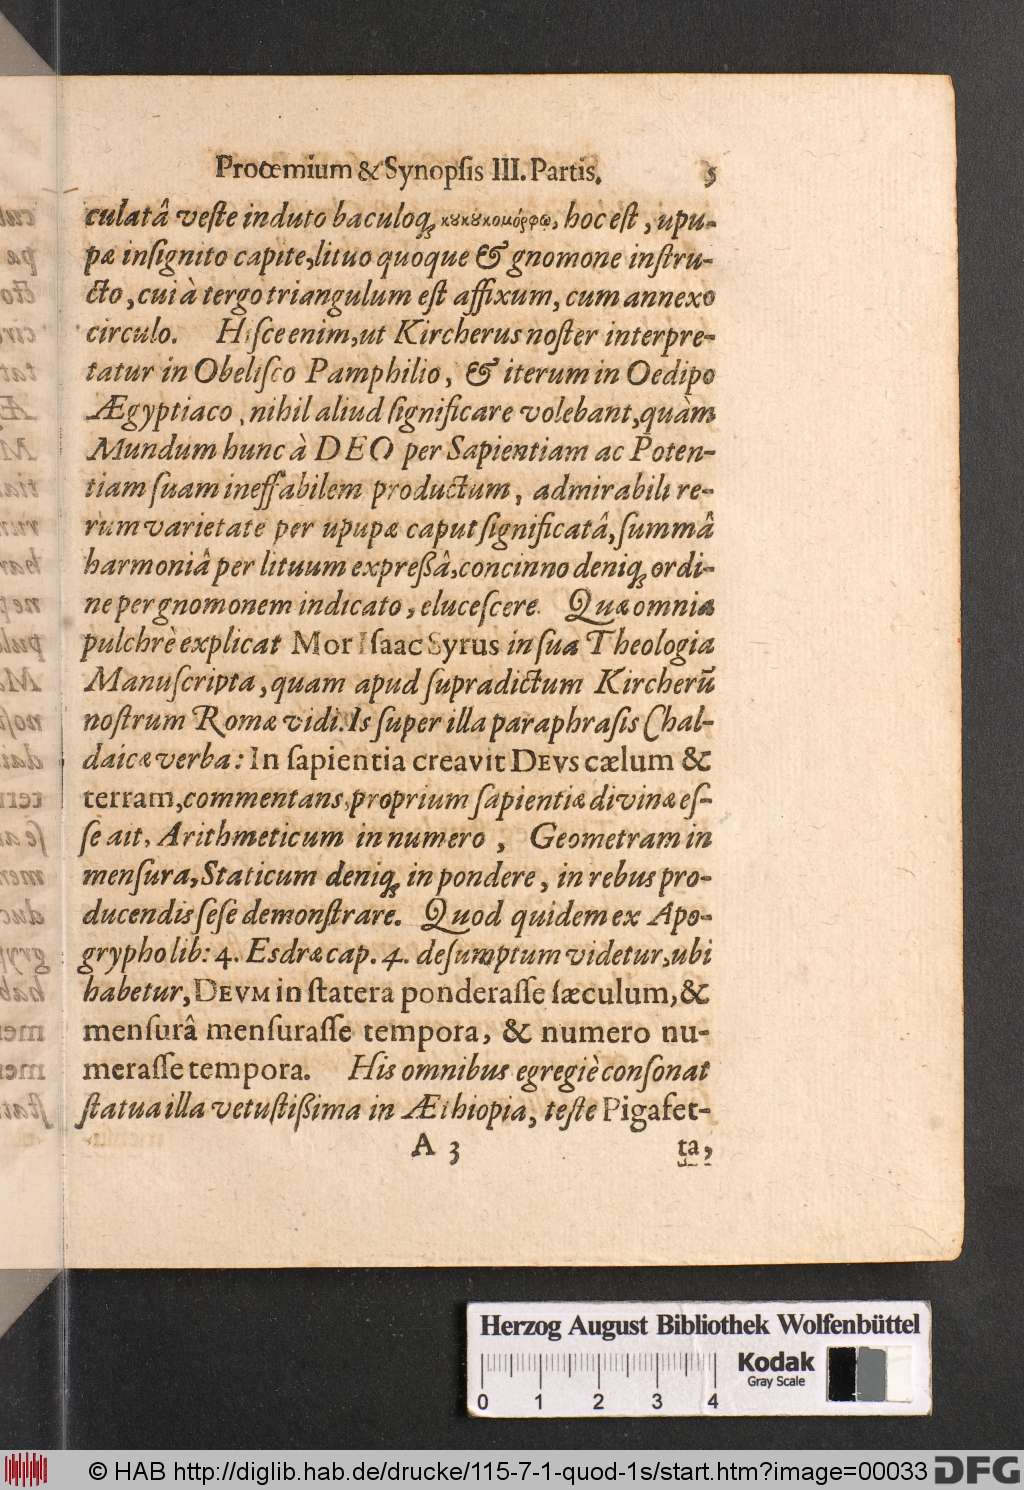 Prooemium & Synopſis III. Partis. 5
culatâ veſte induto baculoq; κȣκȣκομόρφῳ, hoc eſt, upu-
pæ inſignito capite, lituo quoque & gnomone inſtru-
cto, cui à tergo triangulum eſt affixum, cum annexo
circulo. Hiſce enim, ut Kircherus noſter interpre-
tatur in Obeliſco Pamphilio, & iterum in Oedipo
Ægyptiaco, nihil aliud ſignificare volebant, quàm
Mundum hunc à DEO per Sapientiam ac Poten-
tiam ſuam ineffabilem productum, admirabili re-
rum varietate per upupæ caput ſignificatâ, ſummâ
harmoniâ per lituum expreßâ, concinno deniq; ordi-
ne per gnomonem indicato, eluceſcere. Quæ omnia
pulchrè explicat Mor Iſaac Syrus in ſua Theologia
Manuſcripta, quam apud ſupradictum Kircherū
noſtrum Romæ vidi. Is ſuper illa paraphraſis Chal-
daicæ verba: In ſapientia creavit DEVS cælum &
terram, commentans, proprium ſapientiæ divinæ eſ-
ſe ait, Arithmeticum in numero, Geometram in
menſura, Staticum deniq; in pondere, in rebus pro-
ducendis ſeſe demonſtrare. Quod quidem ex Apo-
grypho lib: 4. Esdræ cap. 4. deſumptum videtur, ubi
habetur, DEVM in ſtatera ponderaſſe ſæculum, &
menſurâ menſuraſſe tempora, & numero nu-
meraſſe tempora. His omnibus egregiè conſonat
ſtatua illa vetuſtißima in Æthiopia, teſte Pigafet-
A 3 ta,
Herzog August Bibliothek Wolfenbüttel
Kodak
Gray Scale
0 1 2 3 4
© HAB http://diglib.hab.de/drucke/115-7-1-quod-1s/start.htm?image=00033 DFG